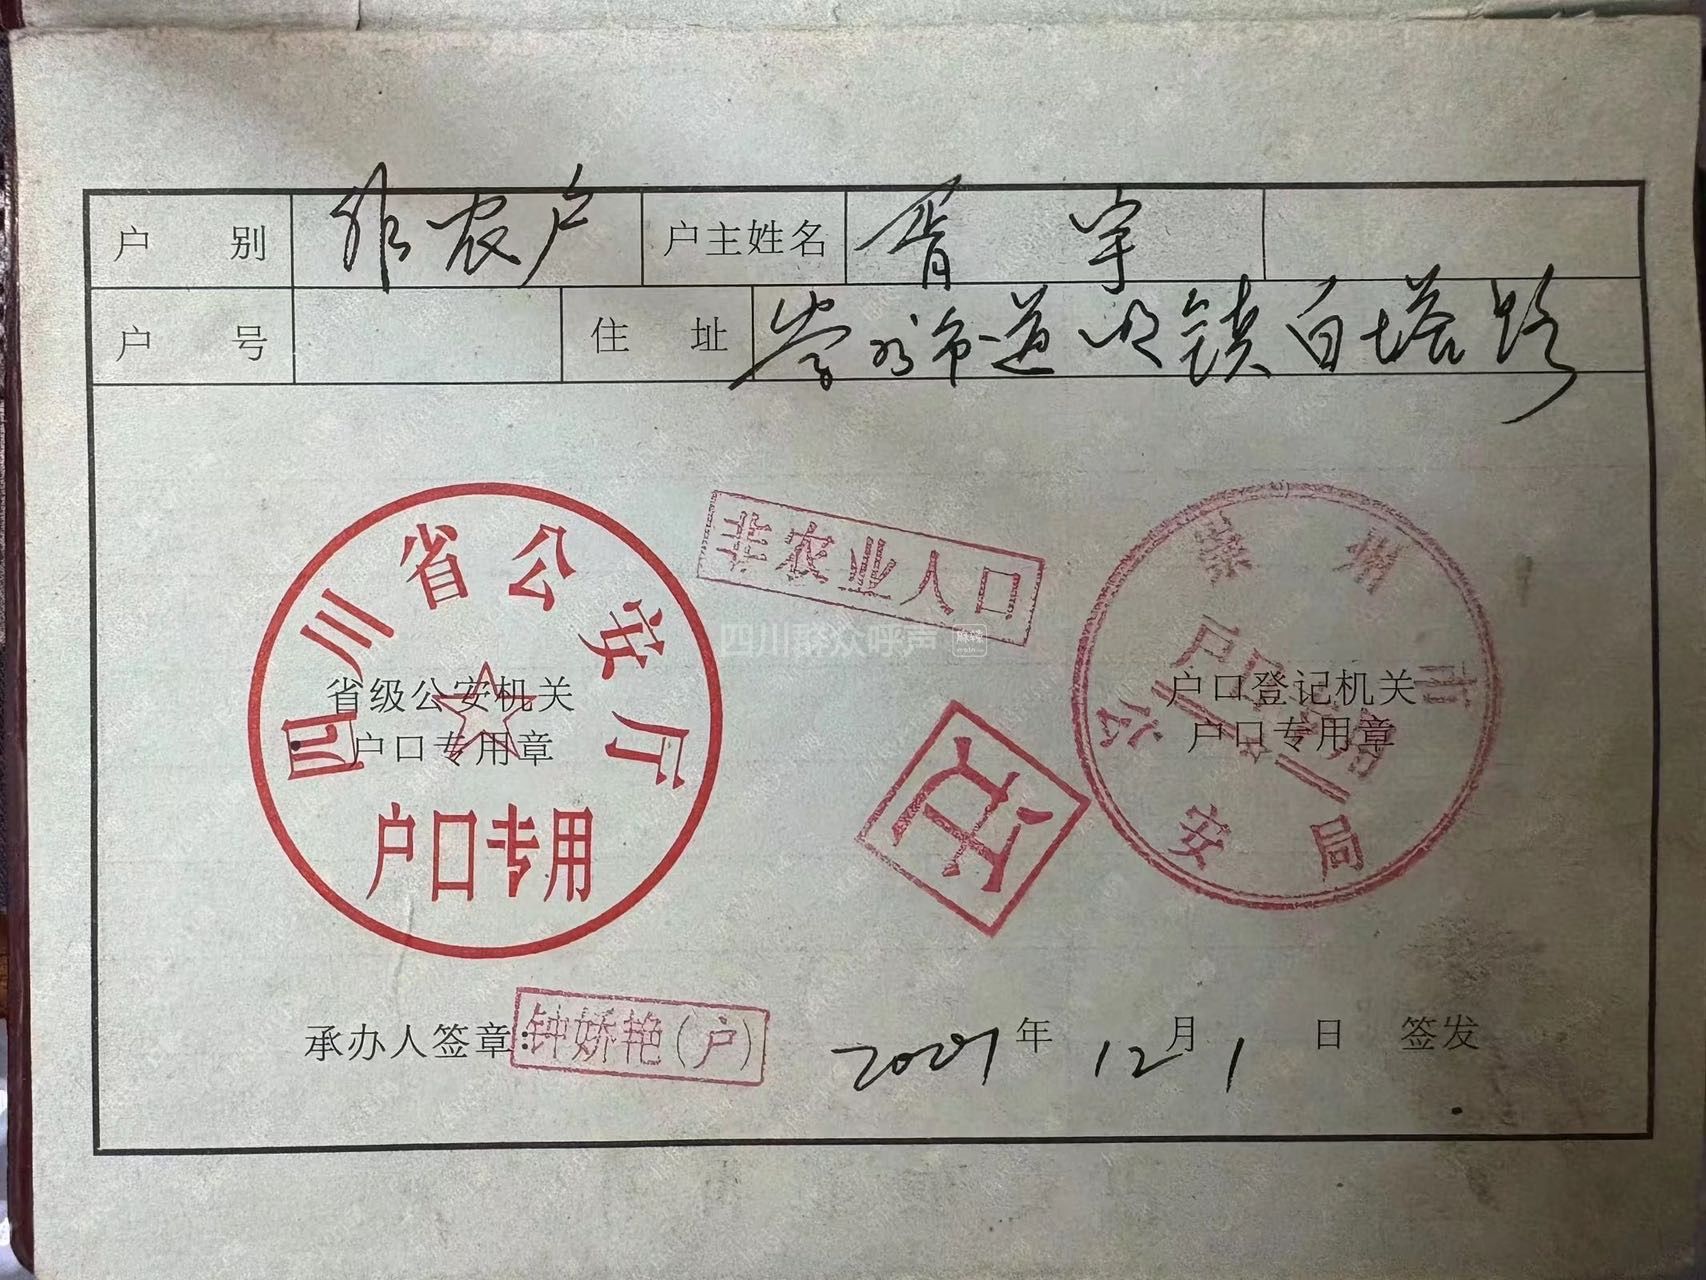 户 别 非农户 户主姓名 胥宇
户 号 住 址 崇州市道明镇白塔路
四川省公安厅
省级公安机关
户口专用章
户口专用
非农业人口
四川群众呼声
正
崇州市公安局
户口登记机关
户口专用章
承办人签章: 钟娇艳(户) 年 12 月 1 日 签发